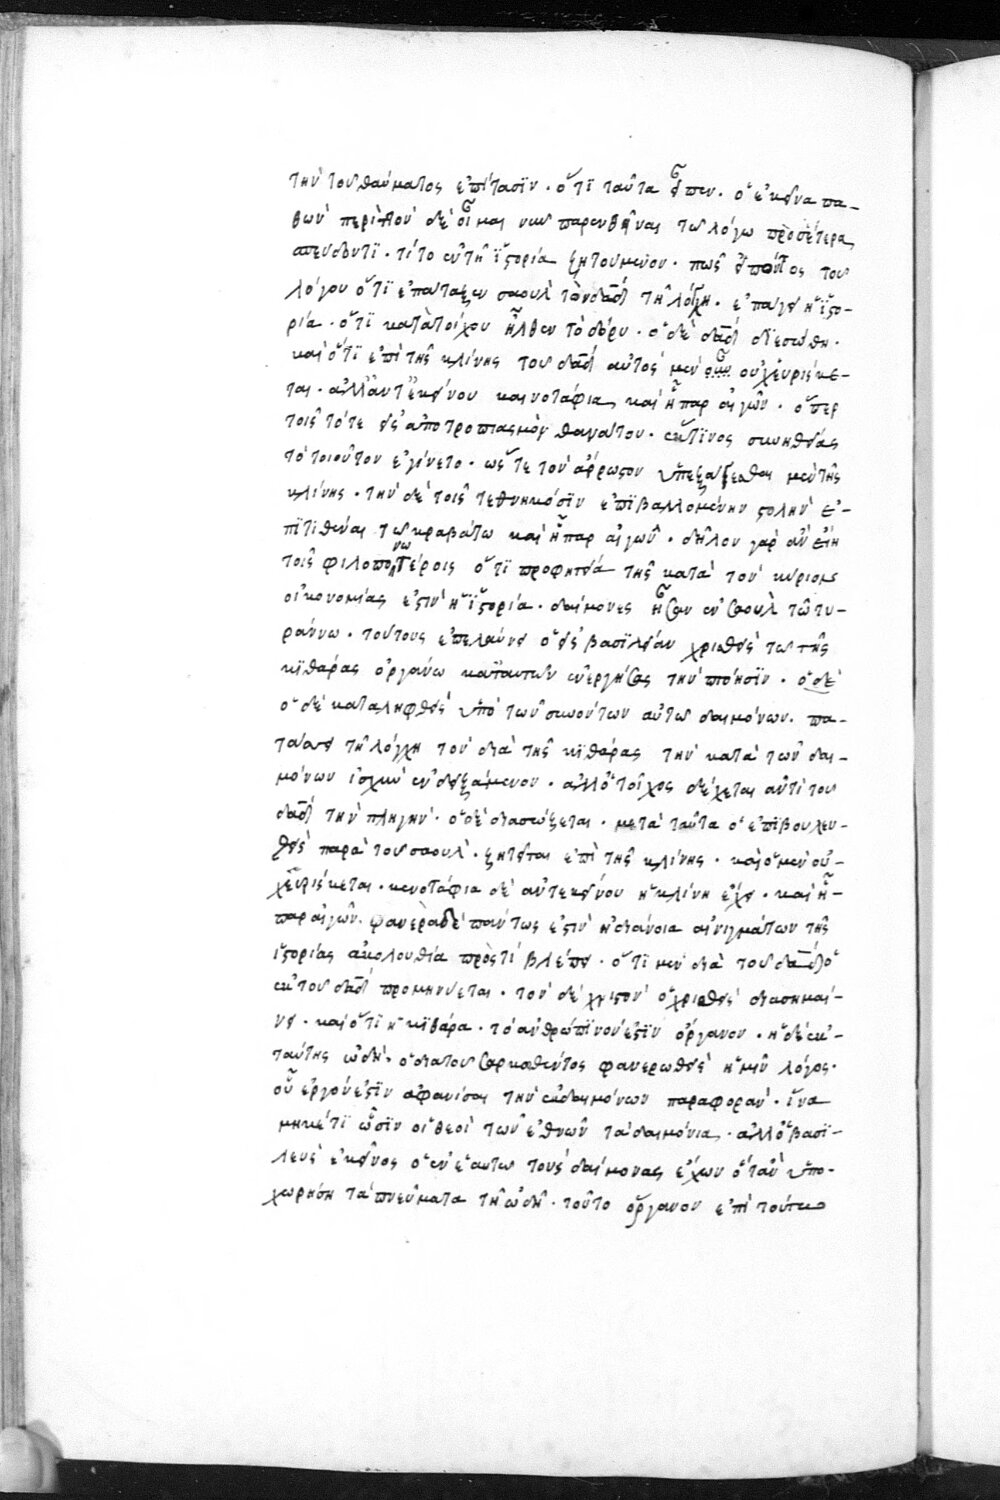 τὴν τοῦ θαύματος ἐπίτασϊν · ὅτϊ ταῦτα εἶπεν · ὁ ἐκεῖνα πα-
θων περὶ οὗ δὲ οἶμαι νῦν παρενθῆναι τῶ λόγω πρὸς ἕτερα
σπεύδοντϊ · τί τὸ ἐν τῆ ἱστορία ζητούμενον · πῶς εἰπόντος τοῦ
λόγου ὅτϊ ἐπάταξεν σαουλ τὸν δαδ τῆ λόγχη · ἐπάγει ἡ ἱστο-
ρία · ὅτϊ κατὰ τοίχου ἦλθεν τὸ δόρυ · ὁ δὲ δαδ διεσώθη ·
καὶ ὅτϊ ἐπὶ τῆς κλίνης τοῦ δαδ αὐτὸς μὲν οὐχ εὑρίσκε-
ται · ἀλλ' ἀντ' ἐκείνου καινοτάφια καὶ ἧπαρ αἰγῶν · ὅπερ
τοῖς τότε εἰς ἀποτροπιασμὸν θανάτου · ἔκ τϊνος συνηθείας
τὸ τοιοῦτον ἐγίνετο · ὥστε τὸν ἄρρωστον ὑπεξάγεσθαι μὲν τῆς
κλίνης · τὴν δὲ τοῖς τεθνηκόσϊν ἐπϊβαλλομένην στολὴν ἐ-
πϊτιθέναι τῶ κραβάτω καὶ ἧπαρ αἰγῶν · δῆλον γὰρ ἂν εἴη
τοῖς φιλοπονωτέροις ὅτϊ προφητεία τῆς κατὰ τὸν κύριον
οἰκονομίας ἐστὶν ἡ ἱστορία · δαίμονες ἦσαν ἐν σαουλ τῶ τυ-
ράννω · τούτους ἐπελαύνει ὁ εἰς βασϊλείαν χρισθεὶς τῶ τῆς
κϊθάρας ὀργάνω κατ' αὐτῶν ἐνεργήσας τὴν πτόησϊν · ὁ δὲ
ὁ δὲ καταληφθεὶς ὑπὸ τῶν συνόντων αὐτῶ δαιμόνων · πα-
τάσσει τῆ λόγχη τὸν διὰ τῆς κϊθάρας τὴν κατὰ τῶν δαι-
μόνων ἰσχὺν ἐνδειξάμενον · ἀλλ' ὁ τοῖχος δέχεται ἀντὶ τοῦ
δαδ τὴν πληγήν · ὁ δὲ διασώζεται · μετὰ ταῦτα ὁ ἐπϊβουλευ-
θεὶς παρὰ τοῦ σαουλ · ζητεῖται ἐπὶ τῆς κλίνης · καὶ ὁ μὲν οὐ-
χ εὑρίσκεται · κενοτάφια δὲ ἀντ' ἐκείνου ἡ κλίνη ἔχει · καὶ ἧ-
παρ αἰγῶν · φανερὰ δὲ πάντως ἐστὶν ἡ διάνοια αἰνιγμάτων τῆς
ἱστορίας ἀκολουθία πρὸς τί βλέπει · ὅτϊ μὲν διὰ τοῦ δαδ ὁ
ἐκ τοῦ δαδ προμηνύεται · τὸν δὲ χριστὸν ὁ χρισθεὶς διασημαί-
νει · καὶ ὅτϊ ἡ κϊθάρα · τὸ ἀνθρώπϊνον ἐστϊν ὄργανον · ἡ δὲ ἐκ
ταύτης ὠδὴ · ὁ διὰ τοῦ σαρκωθέντος φανερωθεὶς ἡμῖν λόγος ·
οὗ ἔργον ἐστϊν ἀφανίσαι τὴν ἐκ δαιμόνων παραφοράν · ἵνα
μηκέτϊ ὦσϊν οἱ θεοὶ τῶν ἐθνῶν τὰ δαιμόνια · ἀλλ' ὁ βασϊ-
λεὺς ἐκεῖνος ὁ ἐν ἑαυτῶ τοὺς δαίμονας ἔχων ὅταν ὑπο-
χωρήση τὰ πνεύματα τῆ ὠδῆ · τοῦτο ὄργανον ἐπὶ τούτω